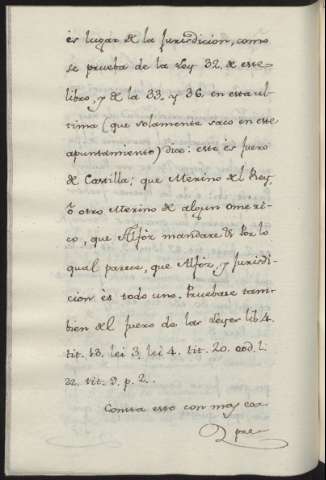 ès lugar de la Jurisdicion, como
se prueba de la Ley 32. de este
libro, y de la 33. y 36. en esta ul
tima (que solamente saco en este
apuntamiento) dice: este ès fuero
de Castilla; que Merino del Rey,
ò otro Merino de algun omeri-
co, que Alfòz mandare &. Por lo
qual parece, que Alfòz, y Jurisdi-
cion ès todo uno. Pruebase tam-
bien del fuero de las Leyes lib. 4.
tit. 13. lei 3. lei 4. tit. 20. eod. l.
22. tit. 9. p. 2.
Contra esto con mas cor
que